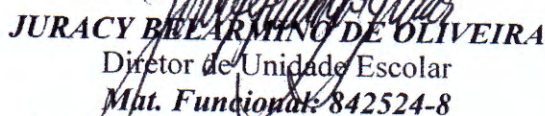 JURACY BELARMINO DE OLIVEIRA
Diretor de Unidade Escolar
Mat. Funcional: 842524-8